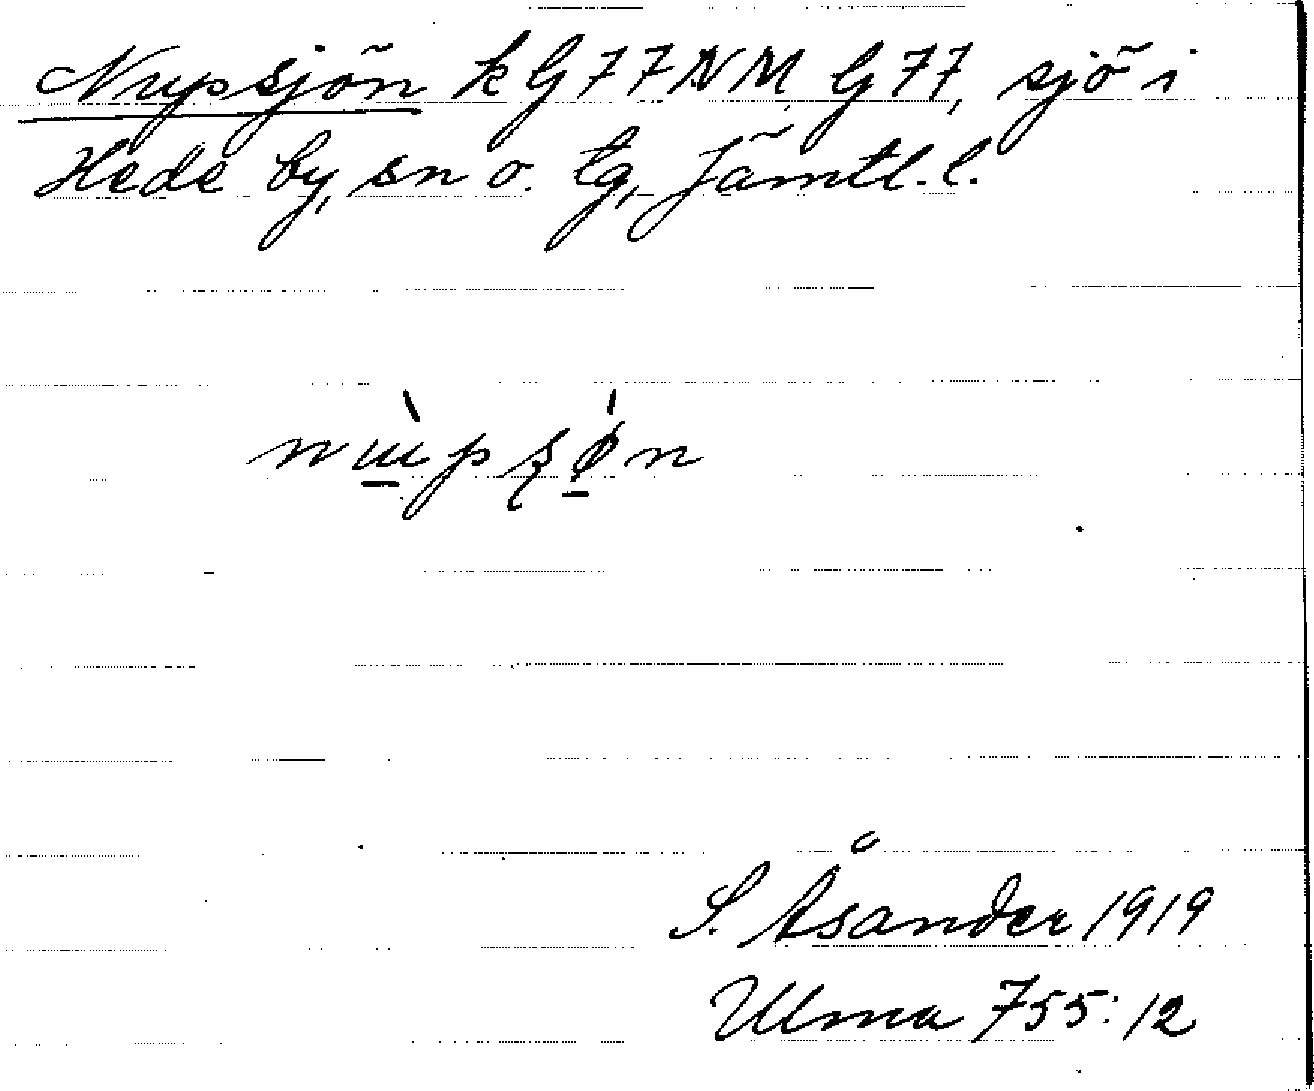 Nupsjön k G77NM G77, sjö i
Hede by, sn o. tg, Jämtl. l.
S. Åsander 1919
Ulma 755:12